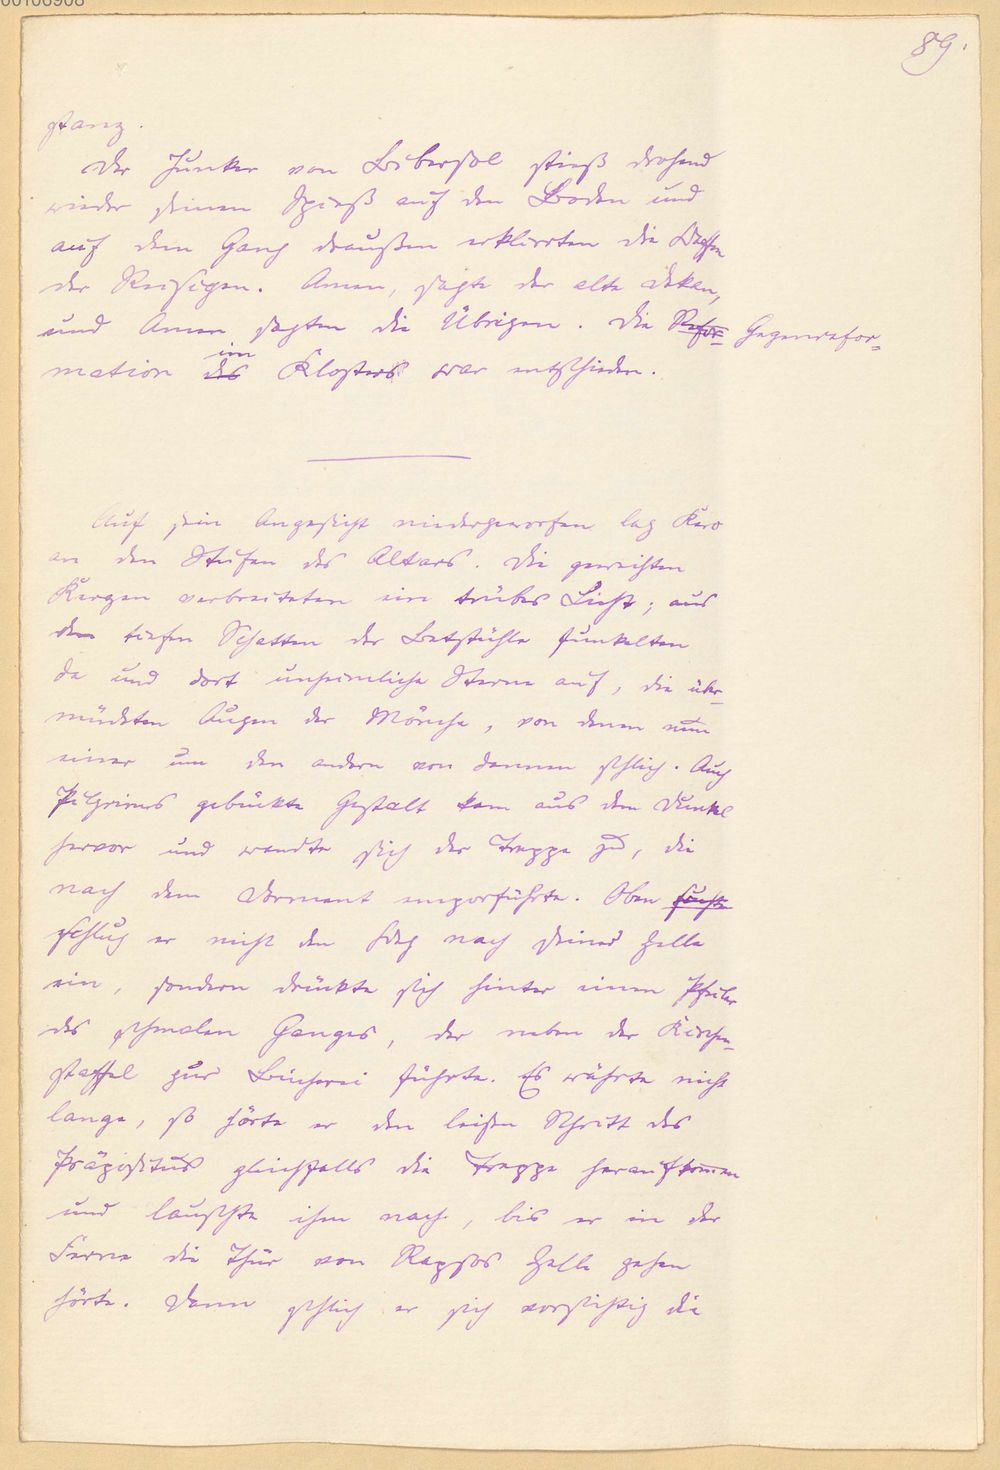 00106908
89.
stanz.
Der Junker von Bibersol stieß drohend
wieder seinen Spieß auf den Boden und
auf dem Gang draußen erklirrten die Waffen
der Reisigen. Amen, sagte der alte Dekan,
und Amen sagten die Übrigen. Die Refor- Gegenrefor-
mation des im Klosters war entschieden.
Auf sein Angesicht niedergeworfen lag Kero
an den Stufen des Altars. Die geweihten
Kerzen verbreiteten ein trübes Licht; aus
dem tiefen Schatten der Betstühle funkelten
da und dort unheimliche Sterne auf, die über-
müdeten Augen der Mönche, von denen nun
einer um den andern von dannen schlich. Auch
Pilgrims gebückte Gestalt kam aus dem Dunkel
hervor und wandte sich der Treppe zu, die
nach dem Dorment emporführte. Oben
schlug er nicht den Weg nach seiner Zelle
ein, sondern drückte sich hinter einen Pfeiler
des schmalen Ganges, der neben der Kirchen-
staffel zur Bücherei führte. Es währte nicht
lange, so hörte er den leisen Schritt des
Präpositus gleichfalls die Treppe heraufkommen
und lauschte ihm nach, bis er in der
Ferne die Thür von Rapsos Zelle gehen
hörte. Dann schlich er sich vorsichtig die